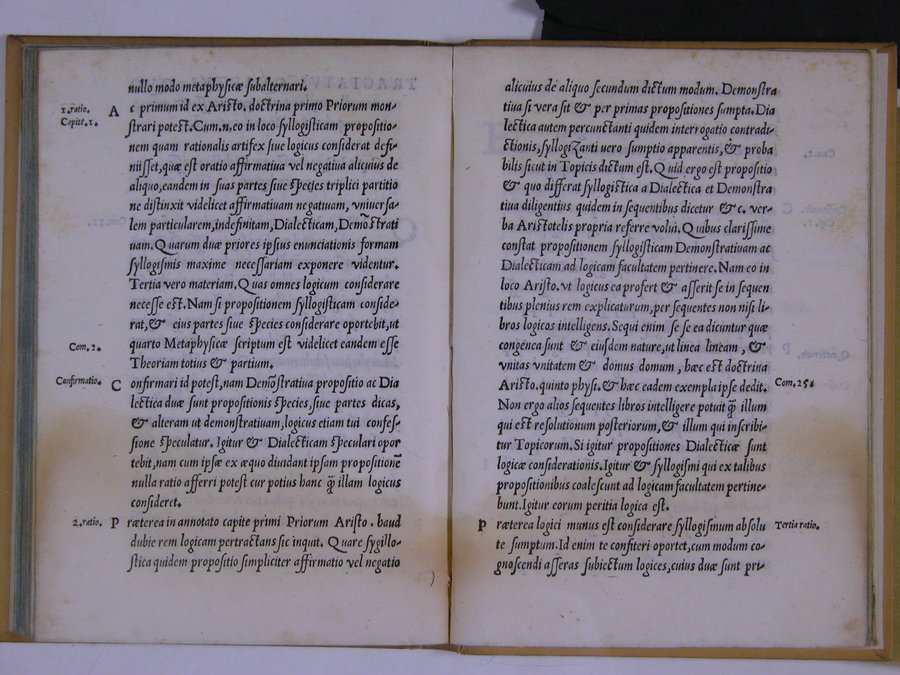 nullo modo metaphysicæ subalternari.
1. ratio. Ac primum id ex Aristo. doctrina primo Priorum mon-
Capite. 1. strari potest. Cum. n. eo in loco syllogisticam propositio-
nem quam rationalis artifex siue logicus considerat defi-
niisset, quæ est oratio affirmatiua vel negatiua alicuius de
aliquo, eandem in suas partes siue species triplici partitio
ne distinxit videlicet affirmatiuam negatuam, vniuersa-
lem particularem, indefinitam, Dialecticam, Demõstrati
uam. Quarum duæ priores ipsius enunciationis formam
syllogismis maxime necessariam exponere videntur.
Tertia vero materiam. Quas omnes logicum considerare
necesse est. Nam si propositionem syllogisticam conside-
rat, & eius partes siue species considerare oportebit, ut
Com. 2. quarto Metaphysicæ scriptum est videlicet eandem esse
Theoriam totius & partium.
Confirmatio. Confirmari id potest, nam Demõstratiua propositio ac Dia
lectica duæ sunt propositionis species, siue partes dicas,
& alteram ut demonstratiuam, logicus etiam tui confes-
sione speculatur. Igitur & Dialecticam speculari opor
tebit, nam cum ipsæ ex æquo diuidant ipsam propositionẽ
nulla ratio afferri potest cur potius hanc q̃ illam logicus
consideret.
2. ratio. Præterea in annotato capite primi Priorum Aristo. haud
dubie rem logicam pertractans sic inquit. Quare sygillo-
stica quidem propositio simpliciter affirmatio vel negatio
alicuius de aliquo secundum dictum modum. Demonstra
tiua si vera sit & per primas propositiones sumpta. Dia
lectica autem percunctanti quidem interrogatio contradi-
ctionis, syllogizanti uero sumptio apparentis, & proba
bilis sicut in Topicis dictum est. Quid ergo est propositio
& quo differat syllogistica a Dialectica et Demonstra
tiua diligentius quidem in sequentibus dicetur & c. ver-
ba Aristotelis propria referre volui. Quibus clarissime
constat propositionem syllogisticam Demonstratiuam ac
Dialecticam ad logicam facultatem pertinere. Nam eo in
loco Aristo. vt logicus ea profert & asserit se in sequen
tibus plenius rem explicaturum, per sequentes non nisi li-
bros logicos intelligens. Sequi enim se se ea dicuntur quæ
congenea sunt & eiusdem nature, ut linea lineam, &
vnitas vnitatem & domus domum, hæc est doctrina
Aristo. quinto physi. & hæc eadem exempla ipse dedit. Com. 25.
Non ergo alios sequentes libros intelligere potuit q̃ illum
qui est resolutionum posteriorum, & illum qui inscribi-
tur Topicorum. Si igitur propositiones Dialecticæ sunt
logicæ considerationis. Igitur & syllogismi qui ex talibus
propositionibus coalescunt ad logicam facultatem pertine-
bunt. Igitur eorum peritia logica est.
Præterea logici munus est considerare syllogismum absolu Tertia ratio.
te sumptum. Id enim te confiteri oportet, cum modum co-
gnoscendi asseras subiectum logices, cuius duæ sunt pri-